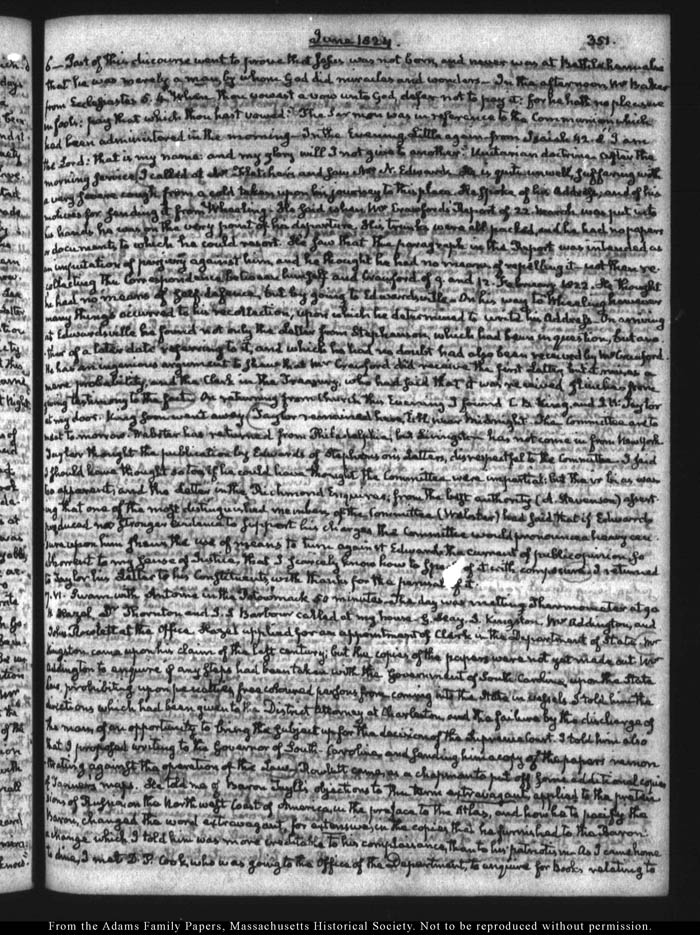 June 1824. 351.
6— Part of this discourse went to prove that Jesus was not born, and never was at Bethlehem else
that he was merely a man, by whom God did miracles and wonders— In the afternoon Mr Baker
from Ecclesiastes 5. 4. "When thou vowest a vow unto God, defer not to pay it: for he hath no pleasure
in fools: pay that which thou hast vowed." The Sermon was in reference to the Communion which
had been administered in the morning— In the Evening Little again from Isaiah 42. 8 "I am
the Lord: that is my name: and my glory will I not give to another." Unitarian doctrine. After the
morning service I called at Mr and saw Mr N. Edwards. He is quite unwell, suffering with
a very severe cough from a cold taken upon his journey to this place. He spoke of his Address, and of his
motives for sending it from Wheeling. He said when Mr Crawford's Report of 22. March was put into
his hands he was on the very point of his departure. His trunks were all packed, and he had no papers
or documents to which he could resort. He saw that the paragraph in the Report was intended as
an imputation of perjury against him, and he thought he had no means of repelling it— not then re-
collecting the Correspondence between himself and Crawford of 9. and 12. February 1822. He thought
he had no means of self-defence, but by going to Edwardsville. On his way to Wheeling however
many things occurred to his recollection, upon which he determined to write his Address. On arriving
at Edwardsville he found not only the Letter from Stephenson, which had been in question, but ano-
ther of a later date referring to it, and which he had no doubt had also been received by Mr Crawford.
He has an ingenious argument to shew that Mr Crawford did receive the first Letter, but it rests on a
mere probability, and the Clerk in the Treasury, who had said that it was received from
giving testimony to the fact. On returning from Church this Evening I found C. B. King, and J. W. Taylor
at my door. King soon went away (Taylor remained here till near Midnight. The Committee are to
meet to-morrow. Webster has returned from Philadelphia, but Livingston has not come in from New York.
Taylor thought the publication by Edwards of Stephenson's Letters, disrespectful to the Committee. I said
I should have thought so too, if he could have thought the Committee were impartial; but the was
so apparent, and the Letter in the Richmond Enquirer, from the best authority (A. Stevenson) assert-
ing that one of the most distinguished members of the Committee (Webster) had said that if Edwards
produced not stronger evidence to support his charges the Committee would pronounce a heavy cen-
sure upon him shews the use of means to turn against Edwards the current of public opinion, so
abhorrent to my sense of Justice, that I scarcely know how to speak of it with composure) I returned
to Taylor his Letter to his Constituents, with thanks for the perusal of it.
7. VI: Swam with Antoine in the Potowmack 50 minutes. The day was melting. Thermometer at 90
S Hazel, Dr Thornton and J. S Barbour called at my house. G. Hay, S. Kingston, Mr Addington, and
John Rowlett at the Office. Hazel applied for an appointment of Clerk in the Department of State. Mr
Kingston came upon his claim of the last century; but the copies of the papers were not yet made out. Mr
Addington to enquire if any steps had been taken with the Government of South Carolina, upon the State
law, prohibiting upon penalties, free coloured persons from coming into the State in vessels. I told him the
directions which had been given to the District Attorney at Charleston, and the failure by the discharge of
the man of an opportunity to bring the subject up for the decision of the Supreme Court. I told him also
that I proposed writing to the Governor of South-Carolina and sending him a copy of the papers remon-
strating against the operation of the Law. Rowlett came, as a chapman to put off some additional copies
of Tanner's maps. He told me of Baron Tuyll's objections to the term extravagant, applied to the preten-
sions of Russia, on the North west Coast of America, in the preface to the Atlas, and how he to pacify the
Baron, changed the word extravagant, for extensive, in the copies that he furnished to the Baron:
a change which I told him was more creditable to his complaisance, than to his patriotism. As I came home
to dine, I met D. P. Cook, who was going to the Office of the Department, to enquire for Books relating to
From the Adams Family Papers, Massachusetts Historical Society. Not to be reproduced without permission.